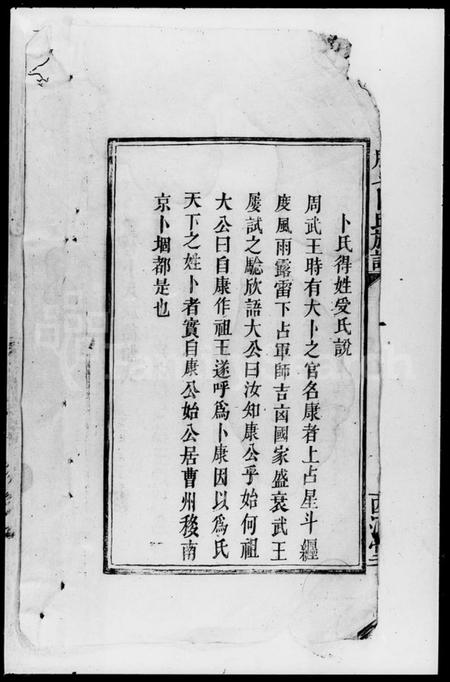 卜氏得姓受氏說
周武王時有大卜之官名康者上占星斗纏
度風雨露雷下占軍師吉凶國家盛衰武王
屢試之騐欣語大公曰汝知康公乎始何祖
大公曰自康作祖王遂呼爲卜康因以爲氏
天下之姓卜者實自康公始公居曹州移南
京卜堌都是也